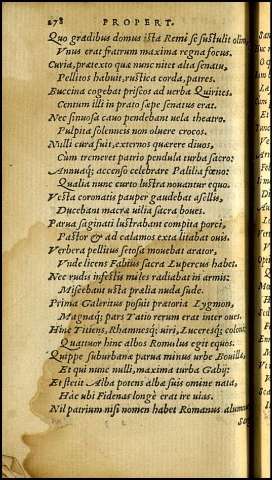 278 PROPERT.
Quo gradibus domus ista Remi se sustulit olim,
Vnus erat fratrum maxima regna focus.
Curia, prætexto quæ nunc nitet alta senatu,
Pellitos habuit, rustica corda, patres.
Buccina cogebat priscos ad uerba Quirites.
Centum illi in prato sæpe senatus erat.
Nec sinuosa cauo pendebant uela theatro.
Pulpita solemneis non oluere crocos.
Nulli cura fuit, externos quærere diuos,
Cum tremeret patrio pendula turba sacro:
Annuaq; accenso celebrare Palilia fœno:
Qualia nunc curto lustra nouantur equo.
Vesta coronatis pauper gaudebat asellis,
Ducebant macræ uilia sacra boues.
Parua saginati lustrabant compita porci,
Pastor & ad calamos exta litabat ouis.
Verbera pellitus setosa mouebat arator,
Vnde licens Fabius sacra Lupercus habet.
Nec rudis infestis miles radiabat in armis:
Miscebant usta prælia nuda sude.
Prima Galeritus posuit prætoria Lygmon,
Magnaq; pars Tatio rerum erat inter oues.
Hinc Titiens, Rhamnesq; uiri, Luceresq; coloni
Quattuor hinc albos Romulus egit equos.
Quippe suburbanæ parua minus urbe Bouillæ,
Et qui nunc nulli, maxima turba Gabij:
Et stetit Alba potens albæ suis omine nata,
Hac ubi Fidenas longè erat ire uias.
Nil patrium nisi nomen habet Romanus alumnus